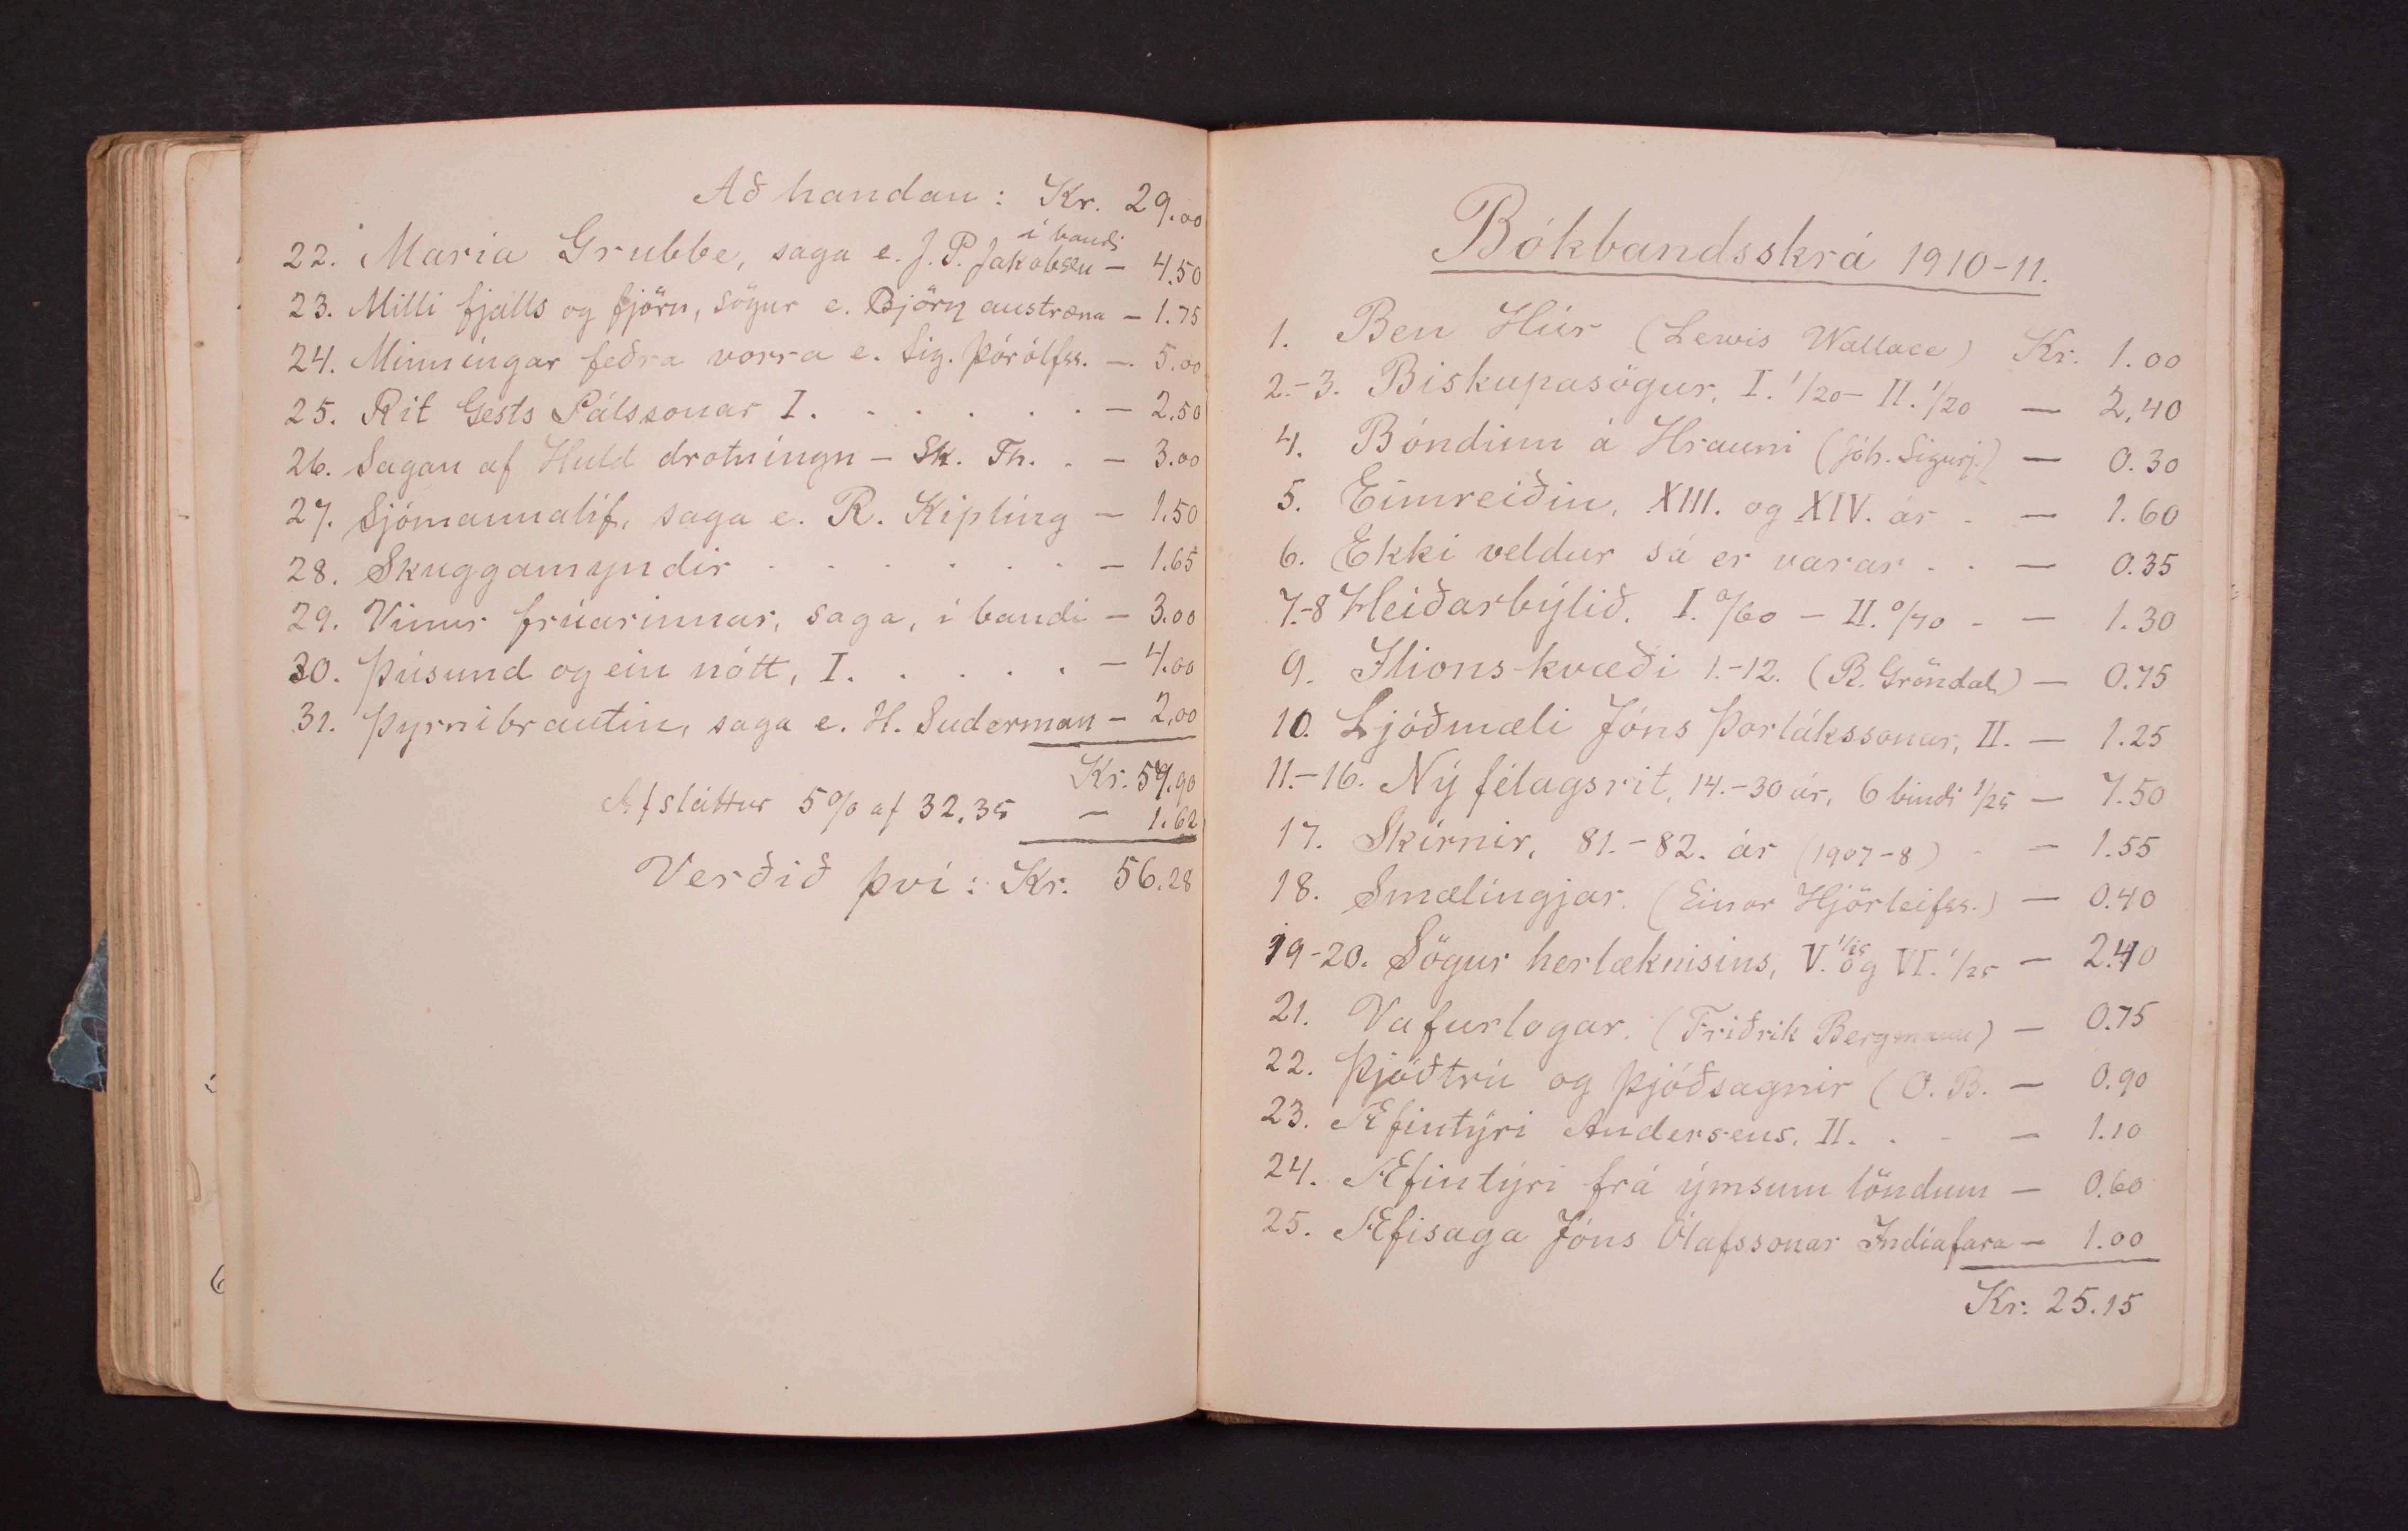 Að handan: Kr. 29.00
22. Maria Grubbe, saga e. J. P. Jakobsen í bandi – 4.50
23. Milli fjalls og fjöru, sögur e. Björn austræna – 1.75
24. Minningar feðra vorra e. Sig. Þórólfss. – 5.00
25. Rit Gests Pálssonar I. . . . . . . – 2.50
26. Sagan af Huld drotningu – Sk. Th. . – 3.00
27. Sjómannalíf, saga e. R. Kipling – 1.50
28. Skuggamyndir . . . . . . – 1.65
29. Vinur frúarinnar, saga, í bandi – 3.00
30. Þúsund og ein nótt, I. . . . . . – 4.00
31. Þyrnibrautin, saga e. H. Suderman – 2.00
Kr. 57.90
Afsláttur 5% af 32,35 – 1.62
Verðið því: Kr. 56.28
Bókbandsskrá 1910-11.
1. Ben Húr (Lewis Wallace) Kr. 1.00
2.-3. Biskupasögur. I. 1/20 – II. 1/20 – 2,40
4. Bóndinn á Hrauni (Jóh. Sigurj.) – 0.30
5. Eimreiðin, XIII. og XIV. ár . – 1.60
6. Ekki veldur sá er varar . . – 0.35
7.-8 Heiðarbýlið. I. 0/60 – II. 0/70 - – 1.30
9. Ilions-kvæði 1.-12. (B. Gröndal) – 0.75
10. Ljóðmæli Jóns Þorlákssonar, II. – 1.25
11.-16. Ný félagsrit, 14.-30 ár, 6 bindi 1/25 – 7.50
17. Skírnir, 81.-82. ár (1907-8) - – 1.55
18. Smælingjar. (Einar Hjörleifss.) – 0.40
19-20. Sögur herlæknisins, V. 1/15 og VI. 1/25 – 2.40
21. Vafurlogar. (Friðrik Bergmann) – 0.75
22. Þjóðtrú og þjóðsagnir (O. B. – 0.90
23. Æfintýri Andersens. II. . - – 1.10
24. Æfintýri frá ýmsum löndum – 0.60
25. Æfisaga Jóns Ólafssonar Indiafara – 1.00
Kr. 25.15